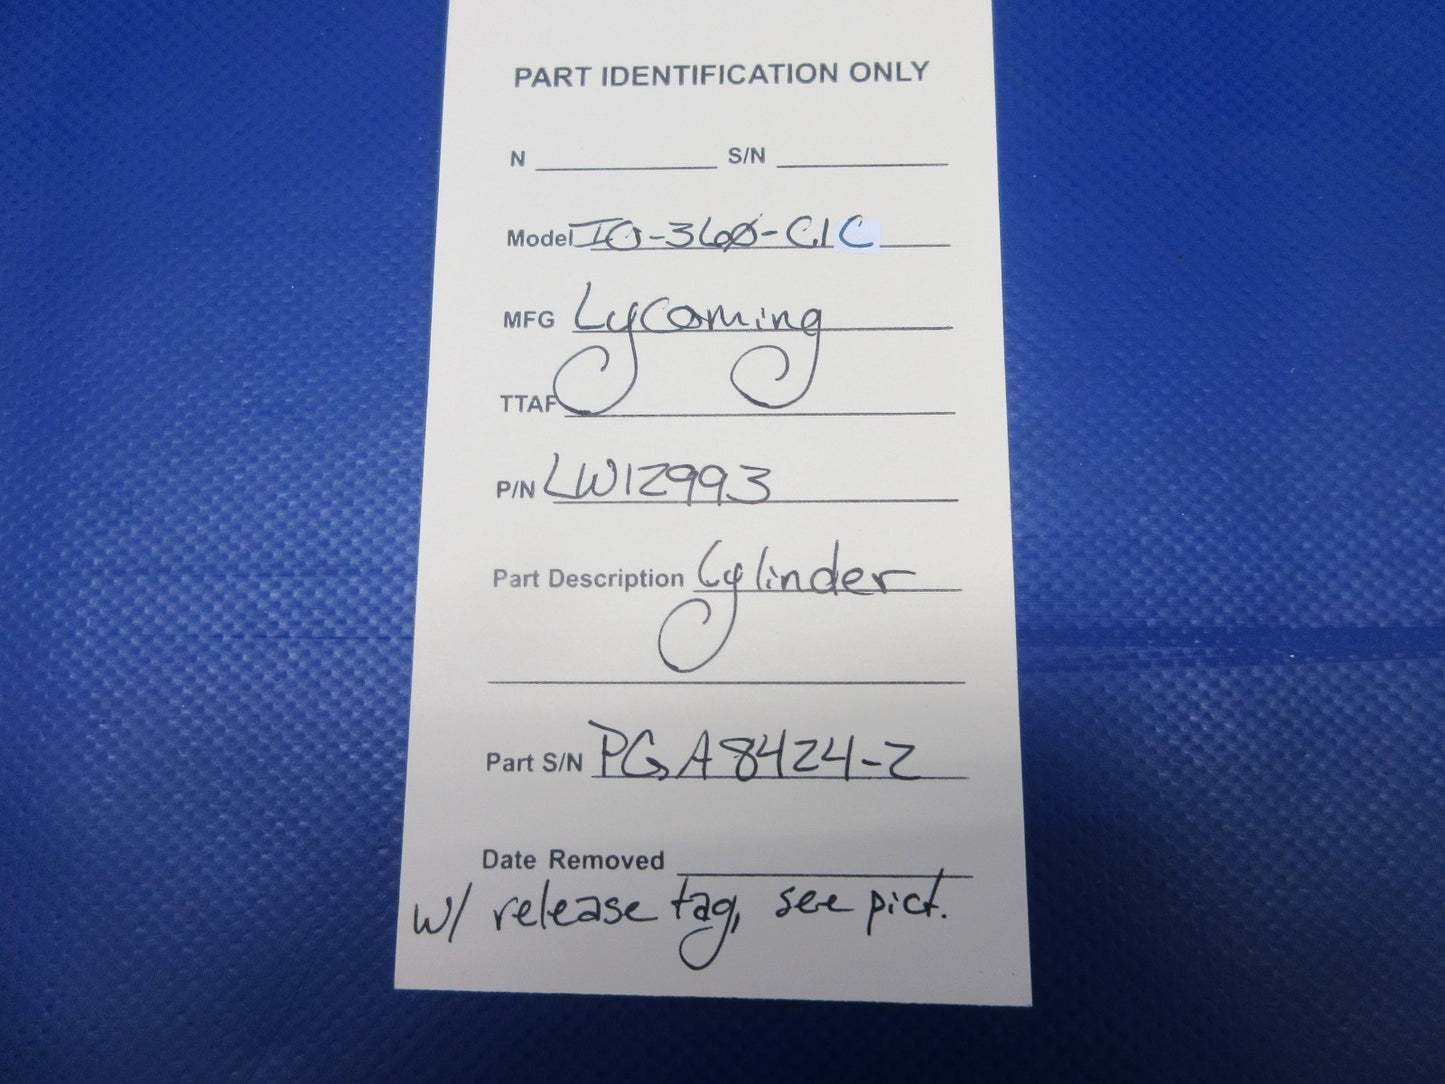 PART IDENTIFICATION ONLY
N ____ S/N ____
Model IO-360-C1C
MFG Lycoming
TTAF
P/N LW12993
Part Description Cylinder
Part S/N PGA8424-2
Date Removed
w/ release tag, see pict.